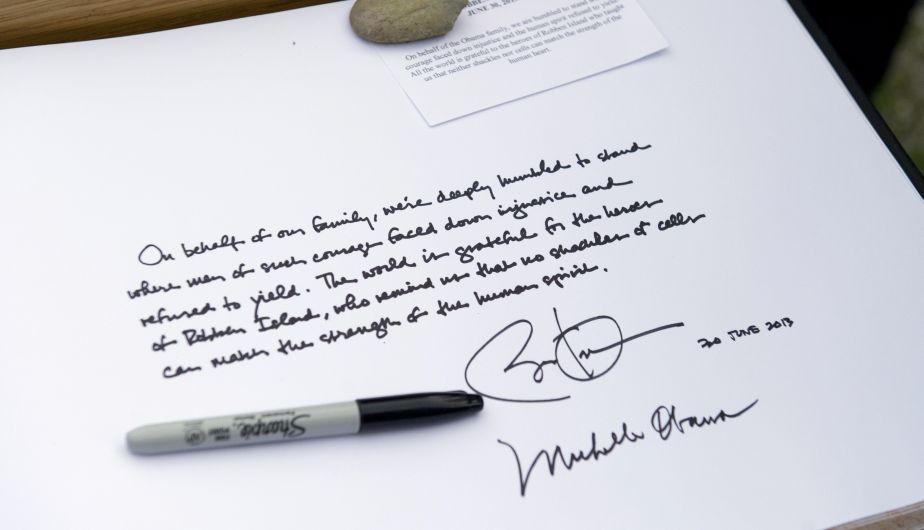 JUNE 30, 201
On behalf of the Obama family, we are humbled to stand w
courage faced down injustice and the human spirit refused to yield.
All the world is grateful to the heroes of Robben Island who taught
us that neither shackles nor cells can match the strength of the
human heart.
On behalf of our family, we're deeply humbled to stand
where men of such courage faced down injustice and
refused to yield. The world is grateful for the heroes
of Robben Island, who remind us that no shackles or cells
can match the strength of the human spirit.
30 JUNE 2013
Michelle Obama
Sharpie